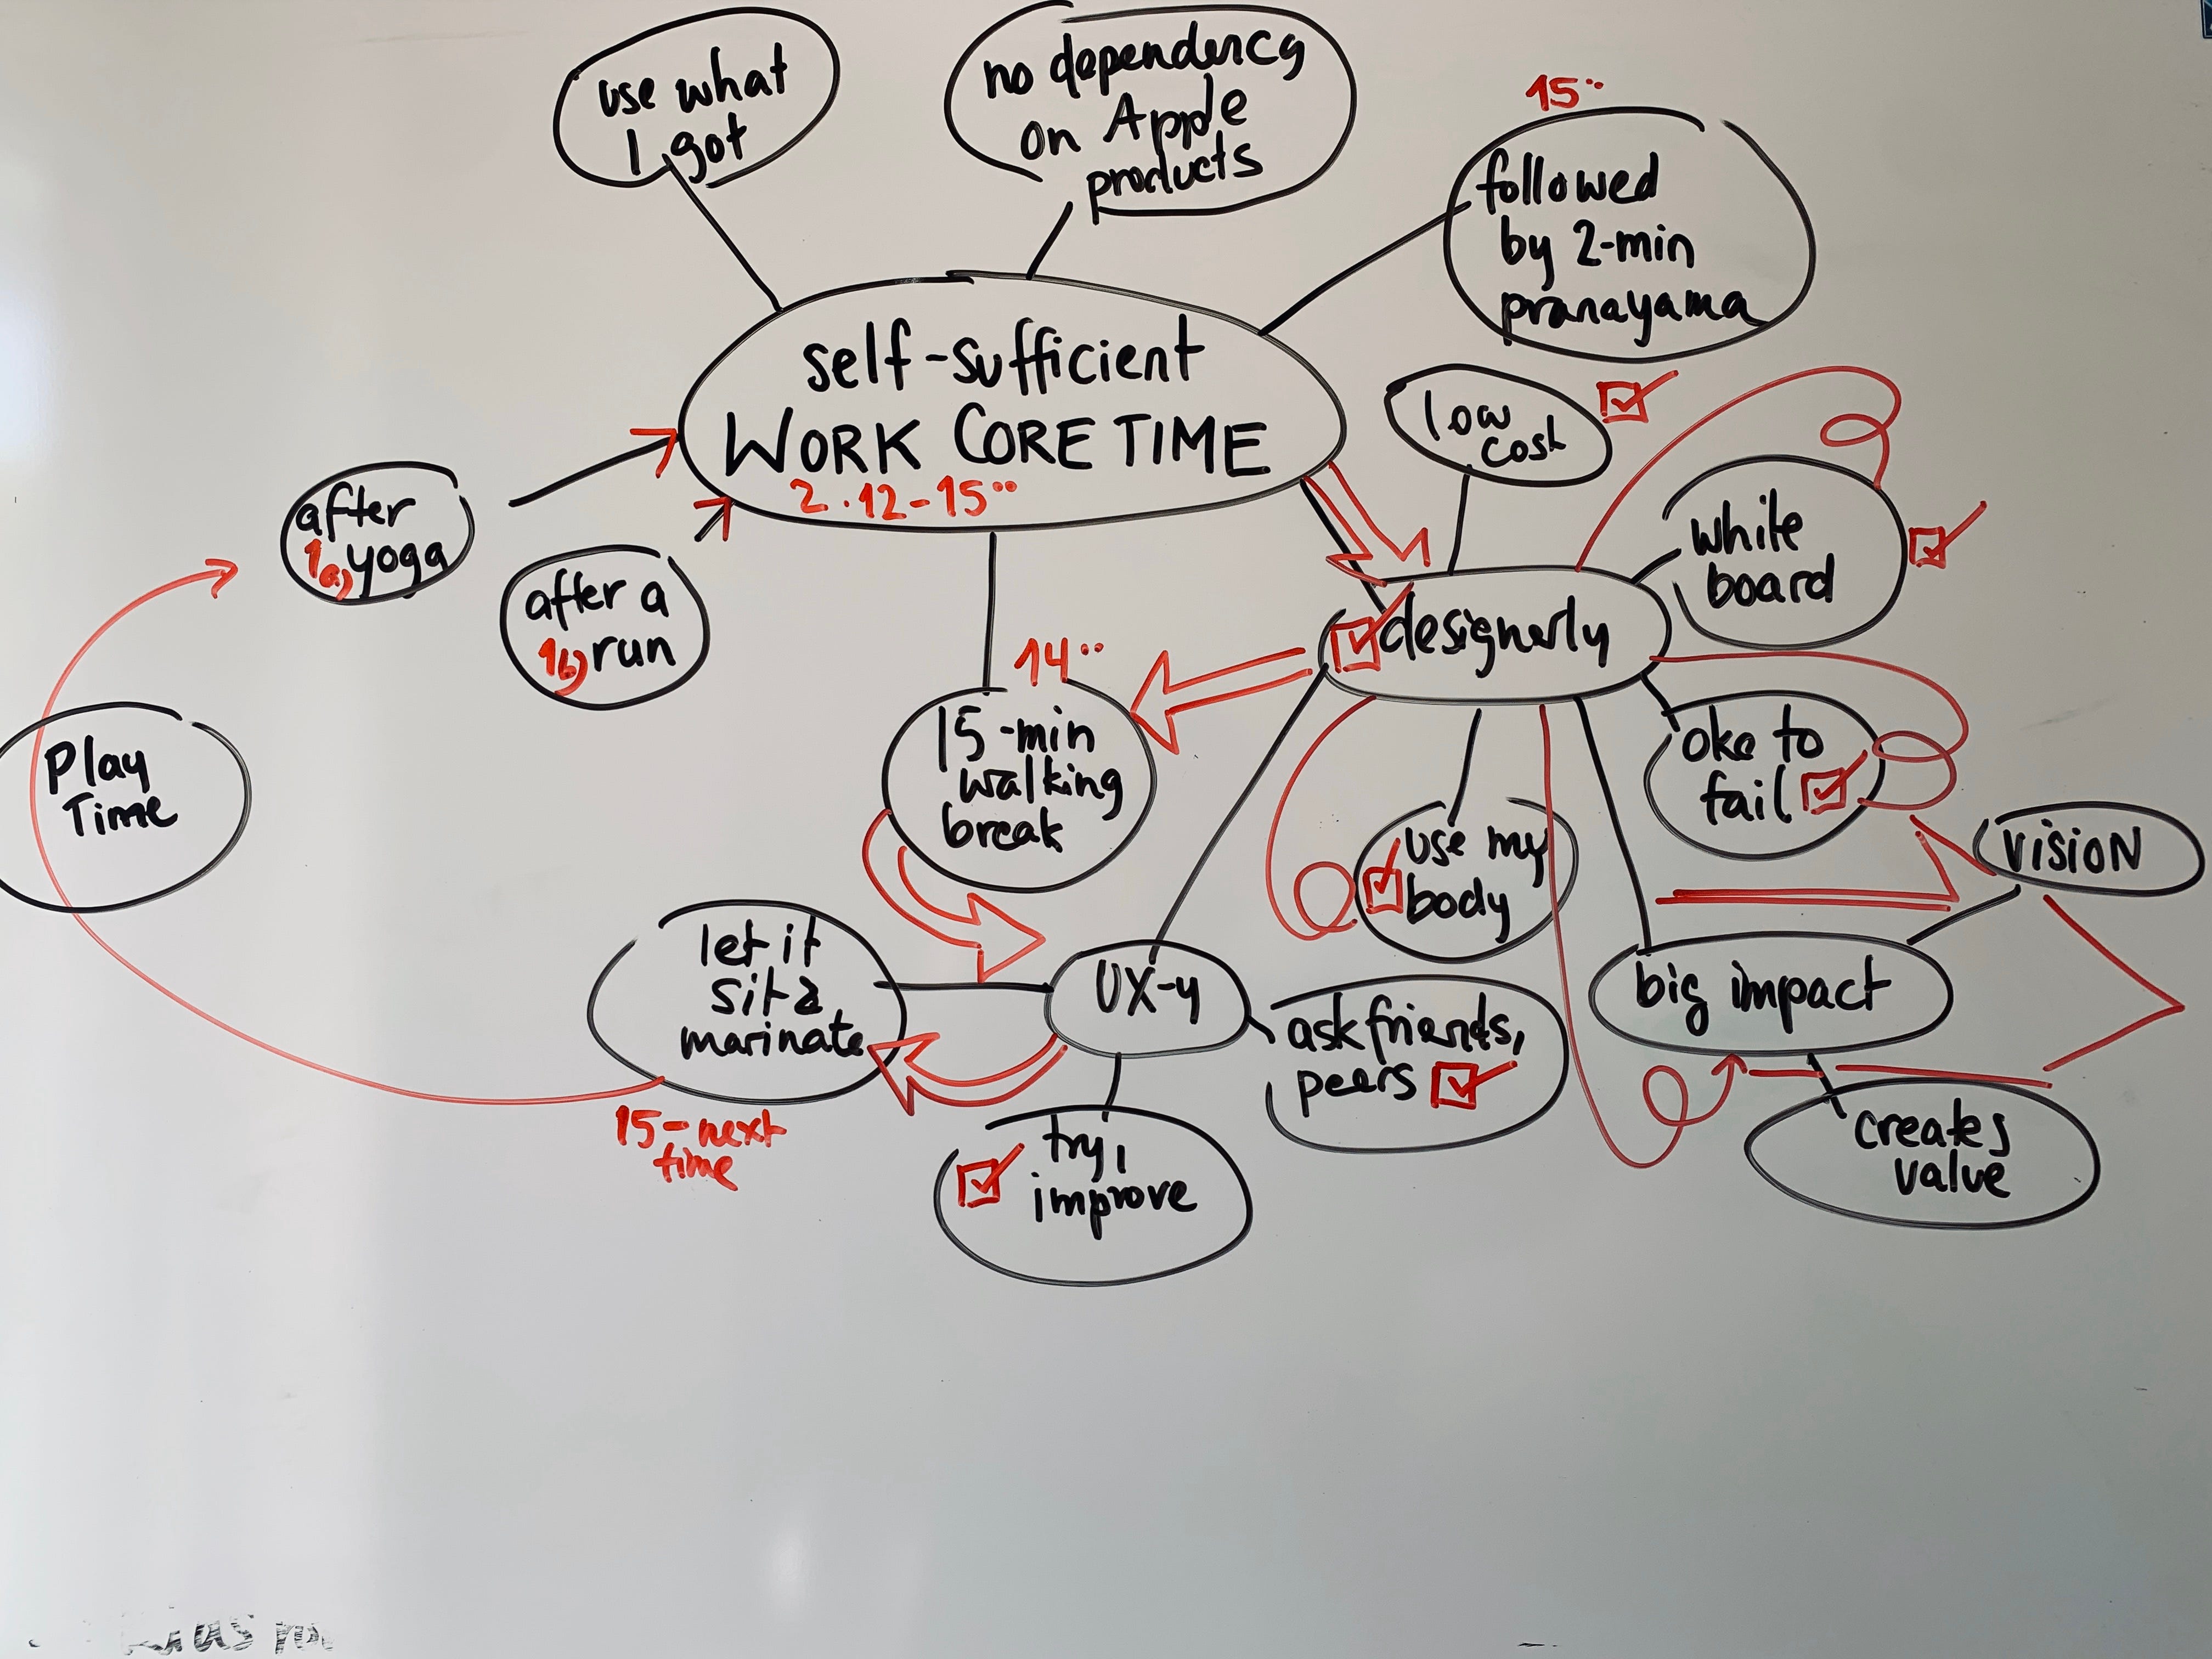 use what
I got
no dependency
on Apple
products
15°°
followed
by 2-min
pranayama
self-sufficient
WORK CORE TIME
2. 12-15°°
low
cost
white
board
after
1a) yoga
after a
1b) run
designerly
14°°
15-min
walking
break
oke to
fail
Play
Time
use my
body
vision
let it
sit &
marinate
UX-y
big impact
ask friends,
peers
15-next
time
try,
improve
creates
value